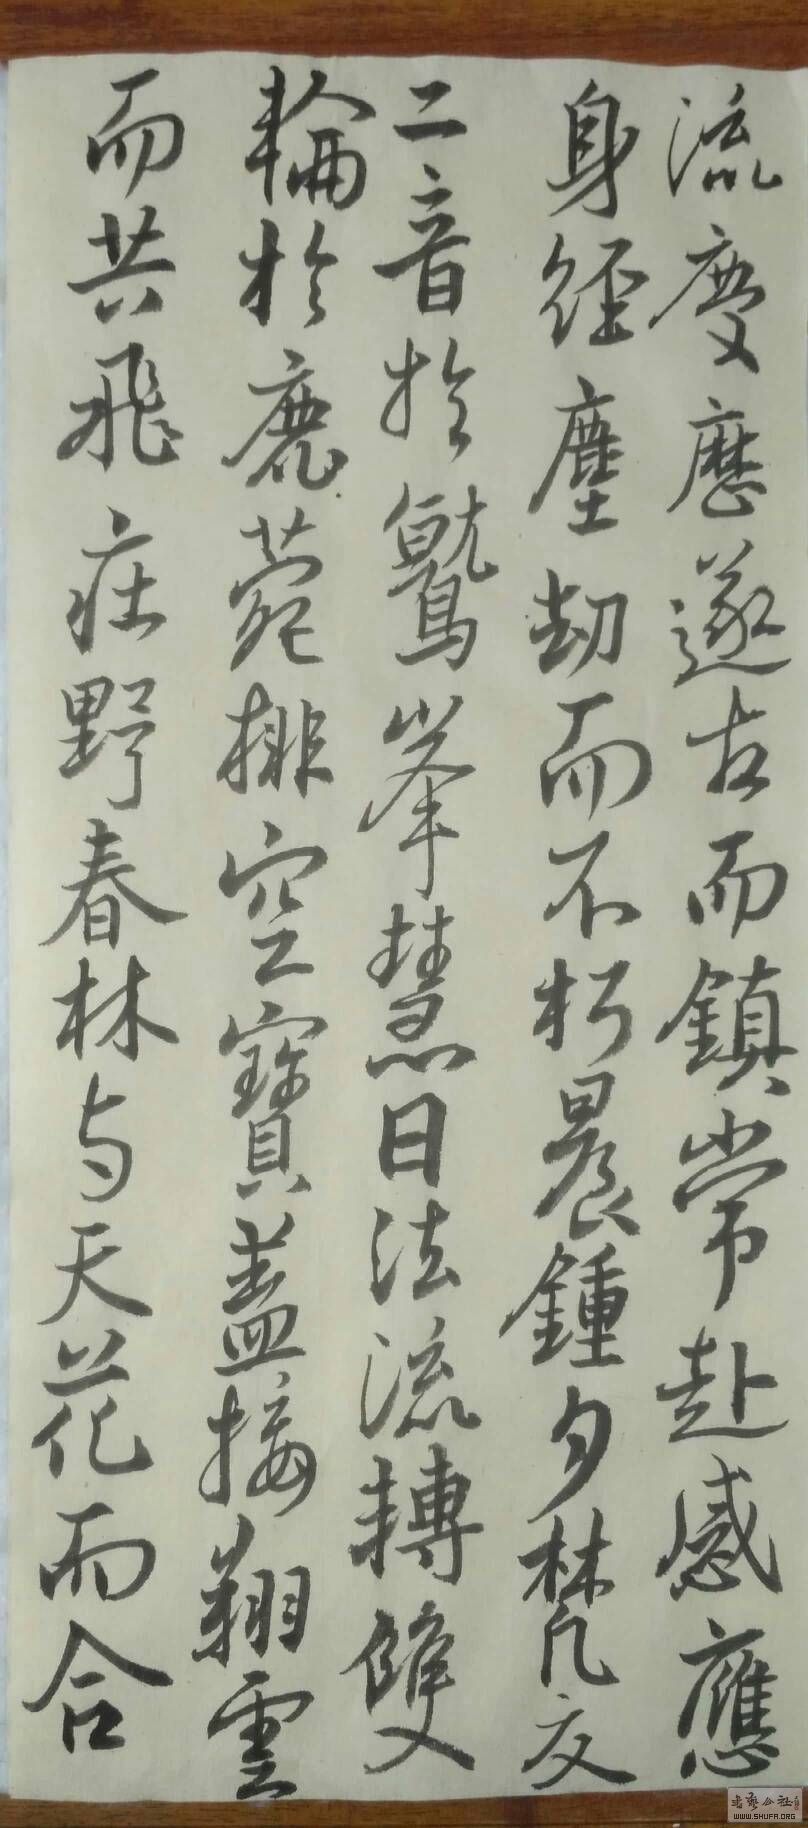 流慶歷遂古而鎮常赴感應
身經塵劫而不朽晨鍾夕梵交
二音於鷲峯慧日法流轉雙
輪於鹿菀排空寶蓋接翔雲
而共飛莊野春林与天花而合
WWW.SHUFA.ORG